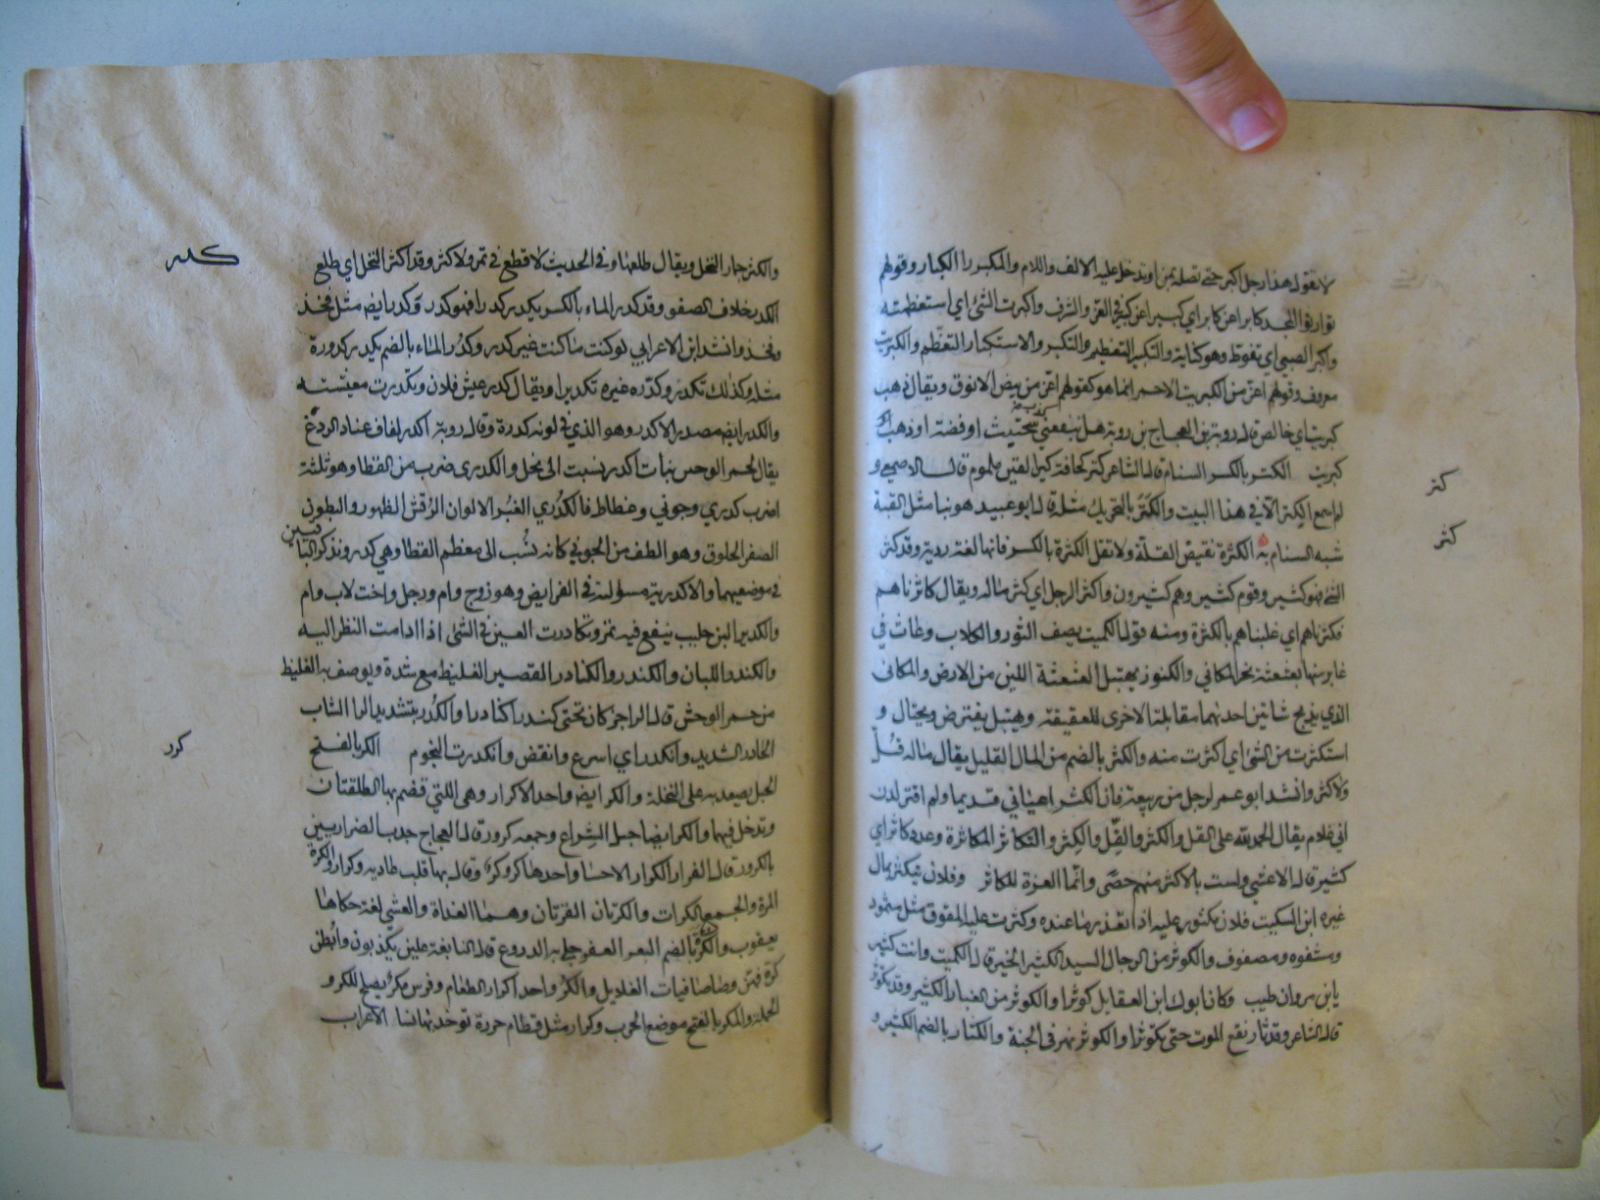 لا تقول هذا رجل اكبر حتى تصله بمن او تدخل عليه الالف واللام والمكبر را الكبار وقولهم
توارثوا المجد كابرا عن كابر اي كبيرا عن كبير في العز والشرف واكبرت الشئ اي استعظمته
واكبر الصبي اي تغوط وهو كناية والتكبير التعظيم والتكبر والاستكبار التعظم والكبريت
معروف وقولهم اعز من الكبريت الاحمر انما هو كقولهم اعز من بيض الانوق ويقال ذهب
كبريت اي خالص قال روبة بن العجاج بن روبة هل ينفعني سختيت او فضة او ذهب
كبريت الكتر بالكسر السنام قال الشاعر كتر كحافة كير القين ملموم قال الاصمعي و
لم اسمع الكتر الا في هذا البيت والكتر بالتحريك مثله قال ابو عبيد هو بنا مثل القبة
شبه السنام به الكثرة نقيض القلة ولا تقل الكثرة بالكسر فانها لغة ردية وقد كثر
الشئ فهو كثير وقوم كثير وهم كثيرون واكثر الرجل اي كثر ماله ويقال كاثرناهم
فكثرناهم اي غلبناهم بالكثرة ومنه قول الكميت يصف الثور والكلاب وعاث في
غابر منها بعثعثة نحر المكافي والمكثور يهتبل العثعثة اللين من الارض والمكافي
الذي يذبح شاتين احدهما مقابلة الاخرى للعقيقة ويهتبل يفترض ويحتال و
استكثرت من الشئ اي اكثرت منه والكثر بالضم من المال القليل يقال ماله قل
ولا كثر وانشد ابو عمر لرجل من ربيعة فان الكثر اعياني قديما ولم اقتر لدن
اني غلام يقال الحمد لله على القل والكثر والقل والكثر والتكاثر المكاثرة وعدد كاثر اي
كثير قال الاعشى ولست بالاكثر منهم حصى وانما العزة للكاثر وفلان يتكثر بمال
غيره ابن السكيت فلان مكثور عليه اذا نفذ ما عنده وكثرت عليه الحقوق مثل مثمود
ومشفوه ومضفوف والكوثر من الرجال السيد الكثير الخير قال الكميت وانت كثير
يا بن مروان طيب وكان ابوك ابن العقايل كوثرا والكوثر من الغبار الكثير وقد تكوثر
قال الشاعر وقد ثار نقع الموت حتى تكوثرا والكوثر نهر في الجنة والكثار بالضم الكثير و
كتر
كثر
والكثر جمار النخل ويقال طلعها وفي الحديث لا قطع في ثمر ولا كثر وقد اكثر النخل اي طلع
الكدر خلاف الصفو وقد كدر الماء بالكسر يكدر كدرا فهو كدر وكدر ايض مثل فخذ
وفخذ وانشد ابن الاعرابي لو كنت ماء كنت غير كدر وكدر الماء بالضم يكدر كدورة
مثله وكذلك تكدر وكدره غيره تكديرا ويقال كدر عيش فلان وتكدرت معيشته
والكدر ايض مصدر الاكدر وهو الذي في لونه كدرة وقال روبة اكدر لفاف عناد الروغ
يقال لحمر الوحش بنات اكدر نسبت الى فحل والكدري ضرب من القطا وهو ثلثة
اضرب كدري وجوني وغطاط فالكدري الغبر الالوان الرقش الظهور والبطون
الصفر الحلوق وهو الطف من الجوني كانه نسب الى معظم القطا وهي كدر ونذكر الباقيين
في موضعهما والاكدرية مسئولة في الفرايض وهو زوج وام وجد واخت لاب وام
والكديراء لبن حليب ينقع فيه تمر وتكادرت العين في الشئ اذا ادامت النظر اليه
والكندر اللبان والكندر والكنادر القصير الغليظ مع شدة ويوصف به الغليظ
من حمر الوحش قال الراجز كان تحتي كندرا كنادرا والكدر بتشديد الرا الشاب
الحادر الشديد وانكدر اي اسرع وانقض وانكدرت النجوم الكر بالفتح
الحبل يصعد به على النخلة والكر ايض واحد الاكرار وهي التي تضم بها الظلفتان
وتدخل فيهما والكر ايضا حبل الشراع وجمعه كرور قال العجاج جذب الصراريين
بالكرور قال الفرا الكرار الاحساء واحدها كر وكر وقال بها قلب عادية وكرار والكرة
المرة والجمع الكرات والكرتان القرتان وهما الغداة والعشي لغة حكاها
يعقوب والكرة بالضم البعر العفن تجلى به الدروع قال النابغة علين بكديون وابطن
كرة فهن وضاء صافيات الغلايل والكر واحد اكرار الطعام وفرس مكر يصلح للكر و
الحملة والمكر بالفتح موضع الحرب وكرار مثل قطام خرزة توخذ بها نساء الاعراب
كدر
كرر